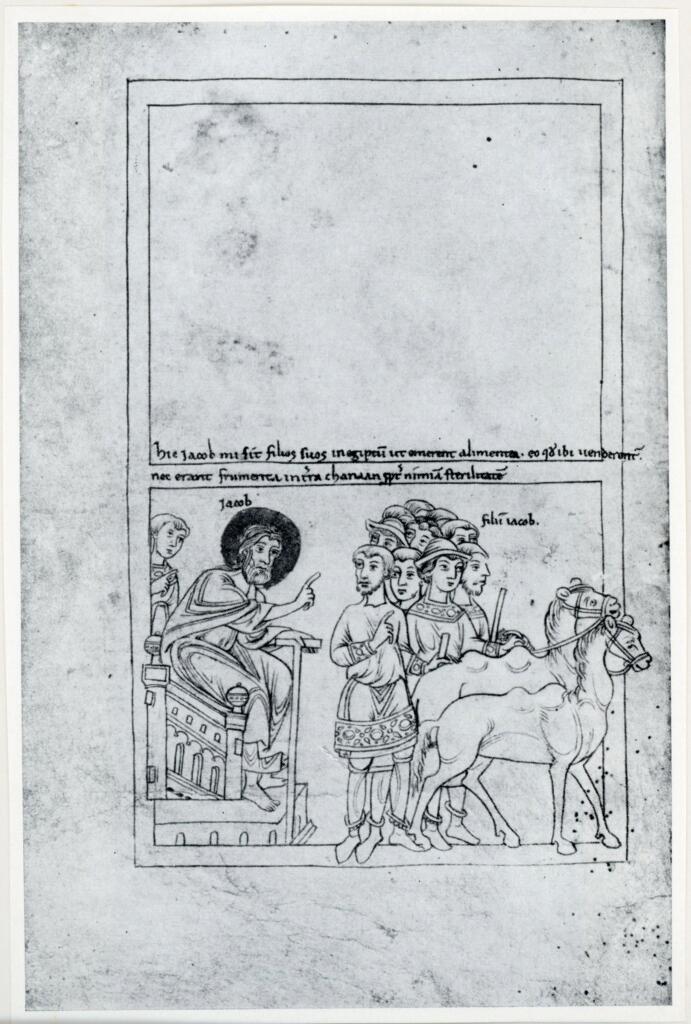 hic Jacob misit filios suos in egiptū ut emerent alimenta. eo qđ ibi uenderent᷑.
nec erant frumenta in tr̄a chanaan ꝓpt᷑ nimiā sterilitatē
Jacob
filii iacob.